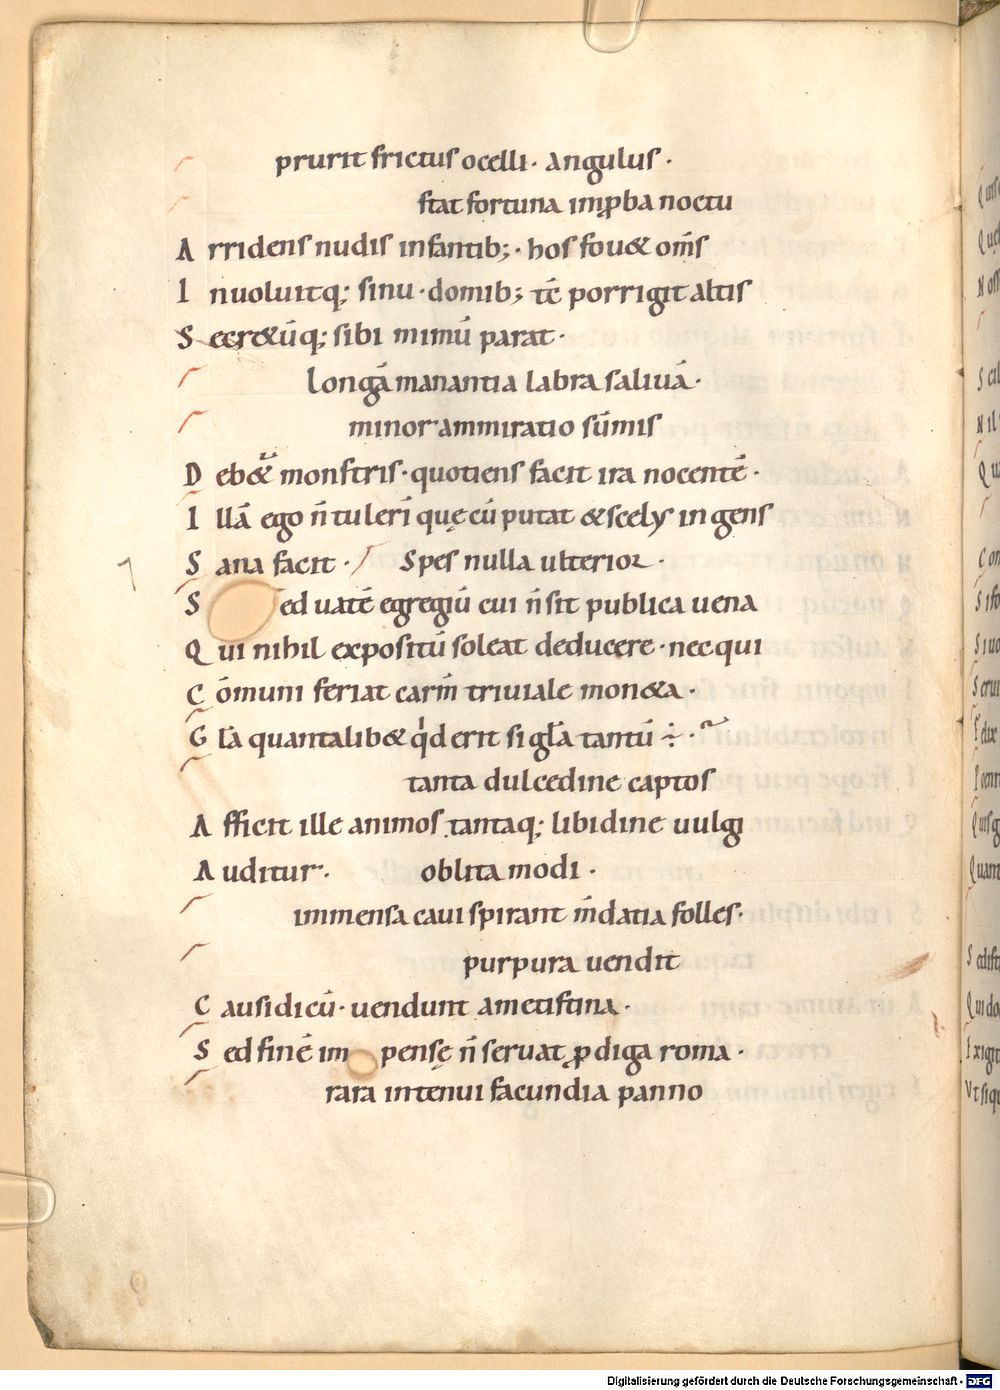 prurit frictus ocelli · angulus ·
stat fortuna imꝓba noctu
A rridens nudis infantib; · hos fou& om̄s
I nuoluitq; sinu · domib; tē porrigit altis
S ecr&ūq; sibi mimū parat ·
longā manantia labra saliuā ·
minor ammiratio sūmis
D eb& monstris · quotiens facit ira nocentē ·
I llā ego n̄ tulerī quę cū putat & scelꝰ ingens
S ana facit · Spes nulla ulterior ·
S ed uatē egregiū cui n̄ sit publica uena
Q ui nihil expositū soleat deducere · nec qui
C ōmuni feriat carm̄ triuiale mon&a ·
G l̄a quantalib& qͥd erit si gl̄a tantū ÷ ·
tanta dulcedine captos
A fficit ille animos tantaq; libidine uulgi
A uditur · oblita modi ·
immensa caui spirant m̄datia folles ·
purpura uendit
C ausidicū · uendunt ametistina ·
S ed finē impensę n̄ seruat ꝓdiga roma ·
rara in tenui facundia panno
Digitalisierung gefördert durch die Deutsche Forschungsgemeinschaft - DFG